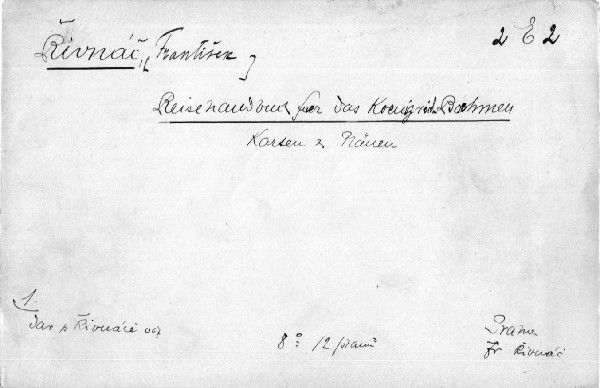 Řivnáč, [František]
2 E 2
Reisehandbuch fuer das Koenigreich Boehmen
Karten & Plänen
1.
dar p Řivnáče
8° 12
Praha
Fr Řivnáč